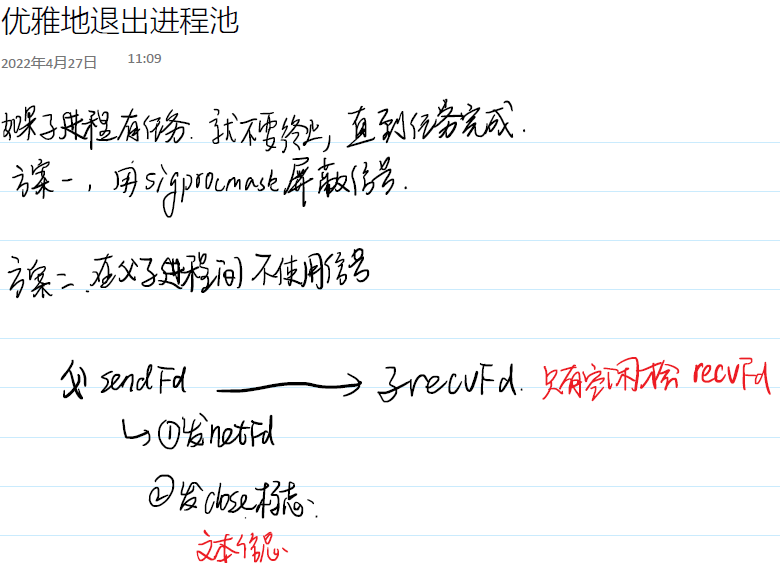 优雅地退出进程池
2022年4月27日 11:09
如果子进程有任务. 就不要终止, 直到任务完成.
方案一, 用sigprocmask屏蔽信号.
方案二. 在父子进程间不使用信号
父 sendFd 子recvFd. 只有空闲才会 recvFd
①发netFd
②发close标志.
文本信息.